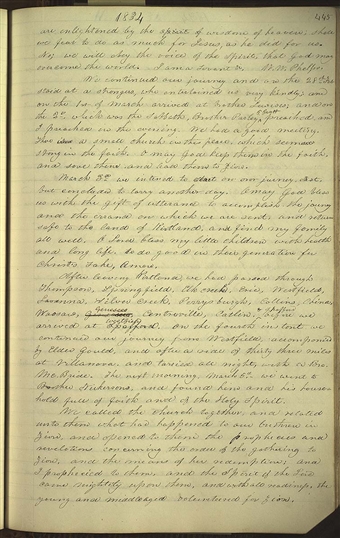 1834
445
are enlightened by the spirit of wisdom of heaven. Shall
we fear to do as much for Jesus, as he did for us?
No; we will obey the voice of the Spirit, that God may
overcome the world. I am a servant &c. W. W. Phelps.
We continued our journey and on the 28th Feb
staid at a strangers, who entertained us very kindly; and
on the 1st of March arrived at brother Lewises, and on
the 2d, which was the sabbath, brother Parley preached, and
I preached in the evening. We had a good meeting,
There is a small church in this place, which seemed
strong in the faith. O may God keep them in the faith,
and save them and lead them to Zion.
March 3d we intend to start on our journey east,
but concluded to tarry another day. O may God bless
us with the gift of utterance to accomplish the journey
and the errand on which we are sent, and return
safe to the land of Kirtland, and find my family
all well. O Lord bless my little children with health
and long life, to do good in their generation for
Christs sake, Amen.
After leaving Kirtland we had passed through
Thompson, Springfield, Elk creek, Erie, Westfield,
Laona, Silver Creek, Perrysburgh, Collins, China,
Warsaw, Geneseo, Centreville, Catlin, & before we
arrived at Spafford. On the fourth instant we
continued our journey from Westfield, accompanied
by Elder Gould, and after a ride of thirty three miles
arrived at Villanova, and tarried all night with a Bro.
McBride. The next morning, March 5th we went to
brother Nickersons, and found him and his house-
hold full of faith and of the Holy Spirit.
We called the church together, and related
unto them what had happened to our brethren in
Zion, and opened to them the prophecies and
revelations concerning the order of the gathering to
Zion, and the means of her redemption; and
I prophecied to them, and the Spirit of the Lord
came mightily upon them, and with all readiness, the
young and middleaged volunteered for Zion.